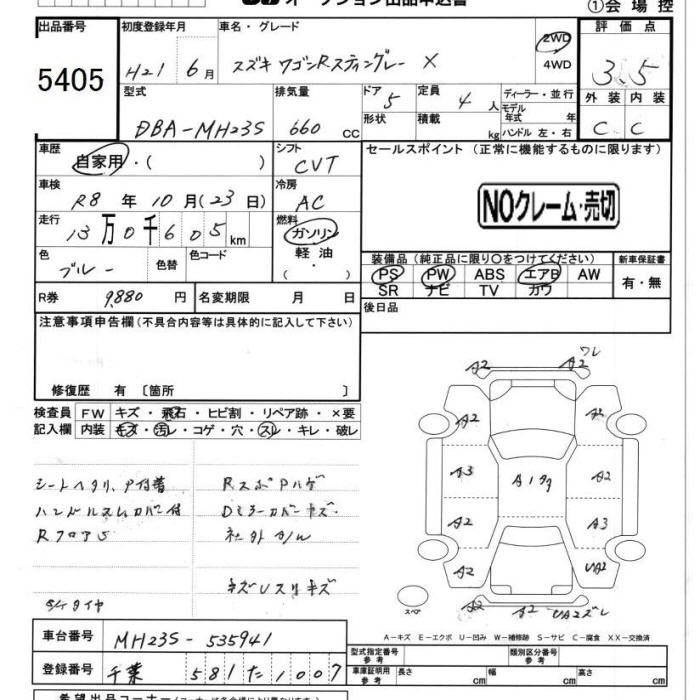 オークション出品申込書
①会場控
出品番号 初度登録年月 車名・グレード 評価点
5405 H21 6月 スズキ ワゴンRスティングレー X 2WD 4WD 3.5
型式 排気量 ドア 5 定員 4人 ディーラー・並行 外装 内装
DBA-MH23S 660cc 形状 積載 kg モデル年式 年 ハンドル 左・右 C C
車歴 自家用・( ) シフト CVT セールスポイント (正常に機能するものに限ります)
車検 R8年10月(23日) 冷房 AC
NOクレーム・売切
走行 13万0千605km 燃料 ガソリン 軽油
色 ブルー 色替 色コード ・( )
装備品 (純正品に限り○をつけてください) 新車保証書
PS PW ABS エアB AW 有・無
SR ナビ TV カワ
R券 9,880円 名変期限 月 日
後日品
注意事項申告欄 (不具合内容等は具体的に記入して下さい)
修復歴 有 〔箇所 〕
検査員 FW キズ・飛石・ヒビ割・リペア跡・×要
記入欄 内装 キズ・汚レ・コゲ・穴・スレ・キレ・破レ
シートヘタリ、P付着 RスポPハゲ
ハンドルスレカバー付 Dミラーカバーキズ
Rフロア S 社外ホイル
キズUスリキズ
タイヤ
A2 A2 ワレ
A2 A2
A3 A1 A2
A2 A3
A2 UA2
A2 A2 UA2ズレ
スペア
A-キズ E-エクボ U-凹み W-補修跡 S-サビ C-腐食 XX-交換済
車台番号 MH23S-535941
型式指定番号 参考 類別区分番号 参考
登録番号 千葉 581 た 1007
車庫証明用 参考 長さ cm 幅 cm 高さ cm
希望出品コーナー